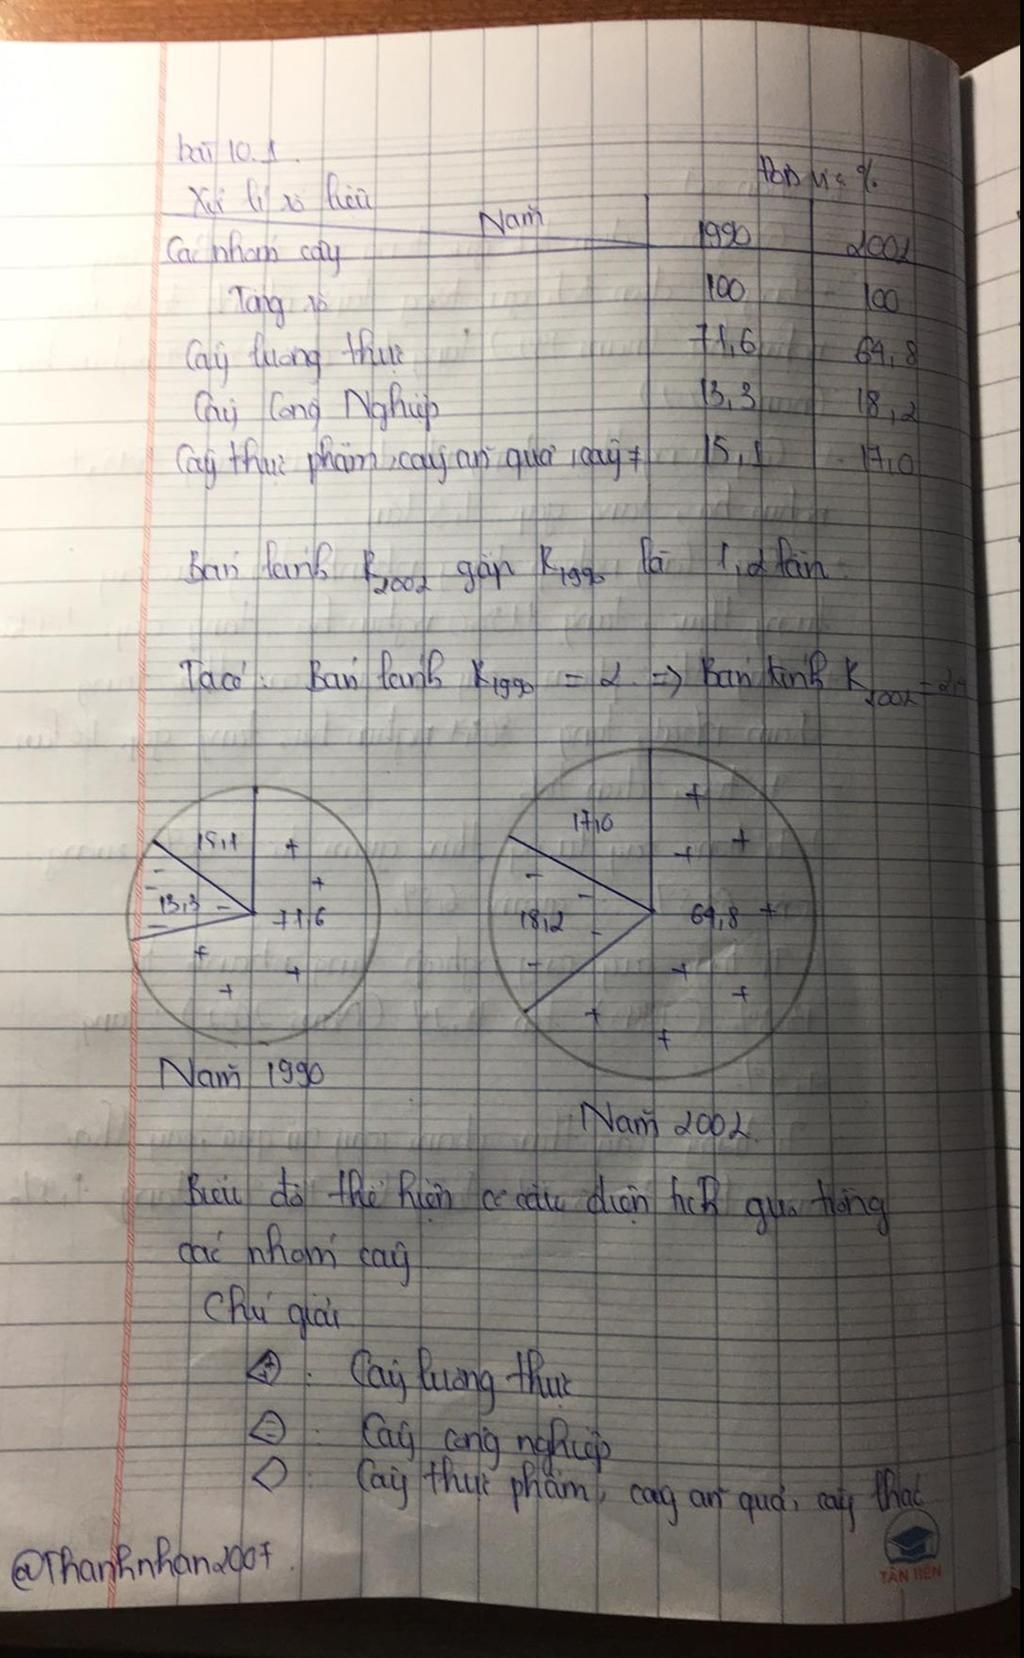 bài 10.1
Xử lí số liệu
Đơn vị: %
Năm
1990
2002
Các nhóm cây
Tổng số
100
100
Cây lương thực
71,6
64,8
Cây Công Nghiệp
13,3
18,2
Cây thực phẩm, cây ăn quả, cây ≠
15,1
17,0
Bán kính R2002 gấp R1990 là 1,2 lần
Ta có: Bán kính R1990 = 2 => Bán kính R2002 = 2,4
15,1
13,3
71,6
17,0
18,2
64,8
Năm 1990
Năm 2002
Biểu đồ thể hiện cơ cấu diện tích gieo trồng
các nhóm cây
Chú giải
+ : Cây lương thực
- : Cây công nghiệp
: Cây thực phẩm, cây ăn quả, cây khác
@Thanhnhan2007
TÂN TIẾN